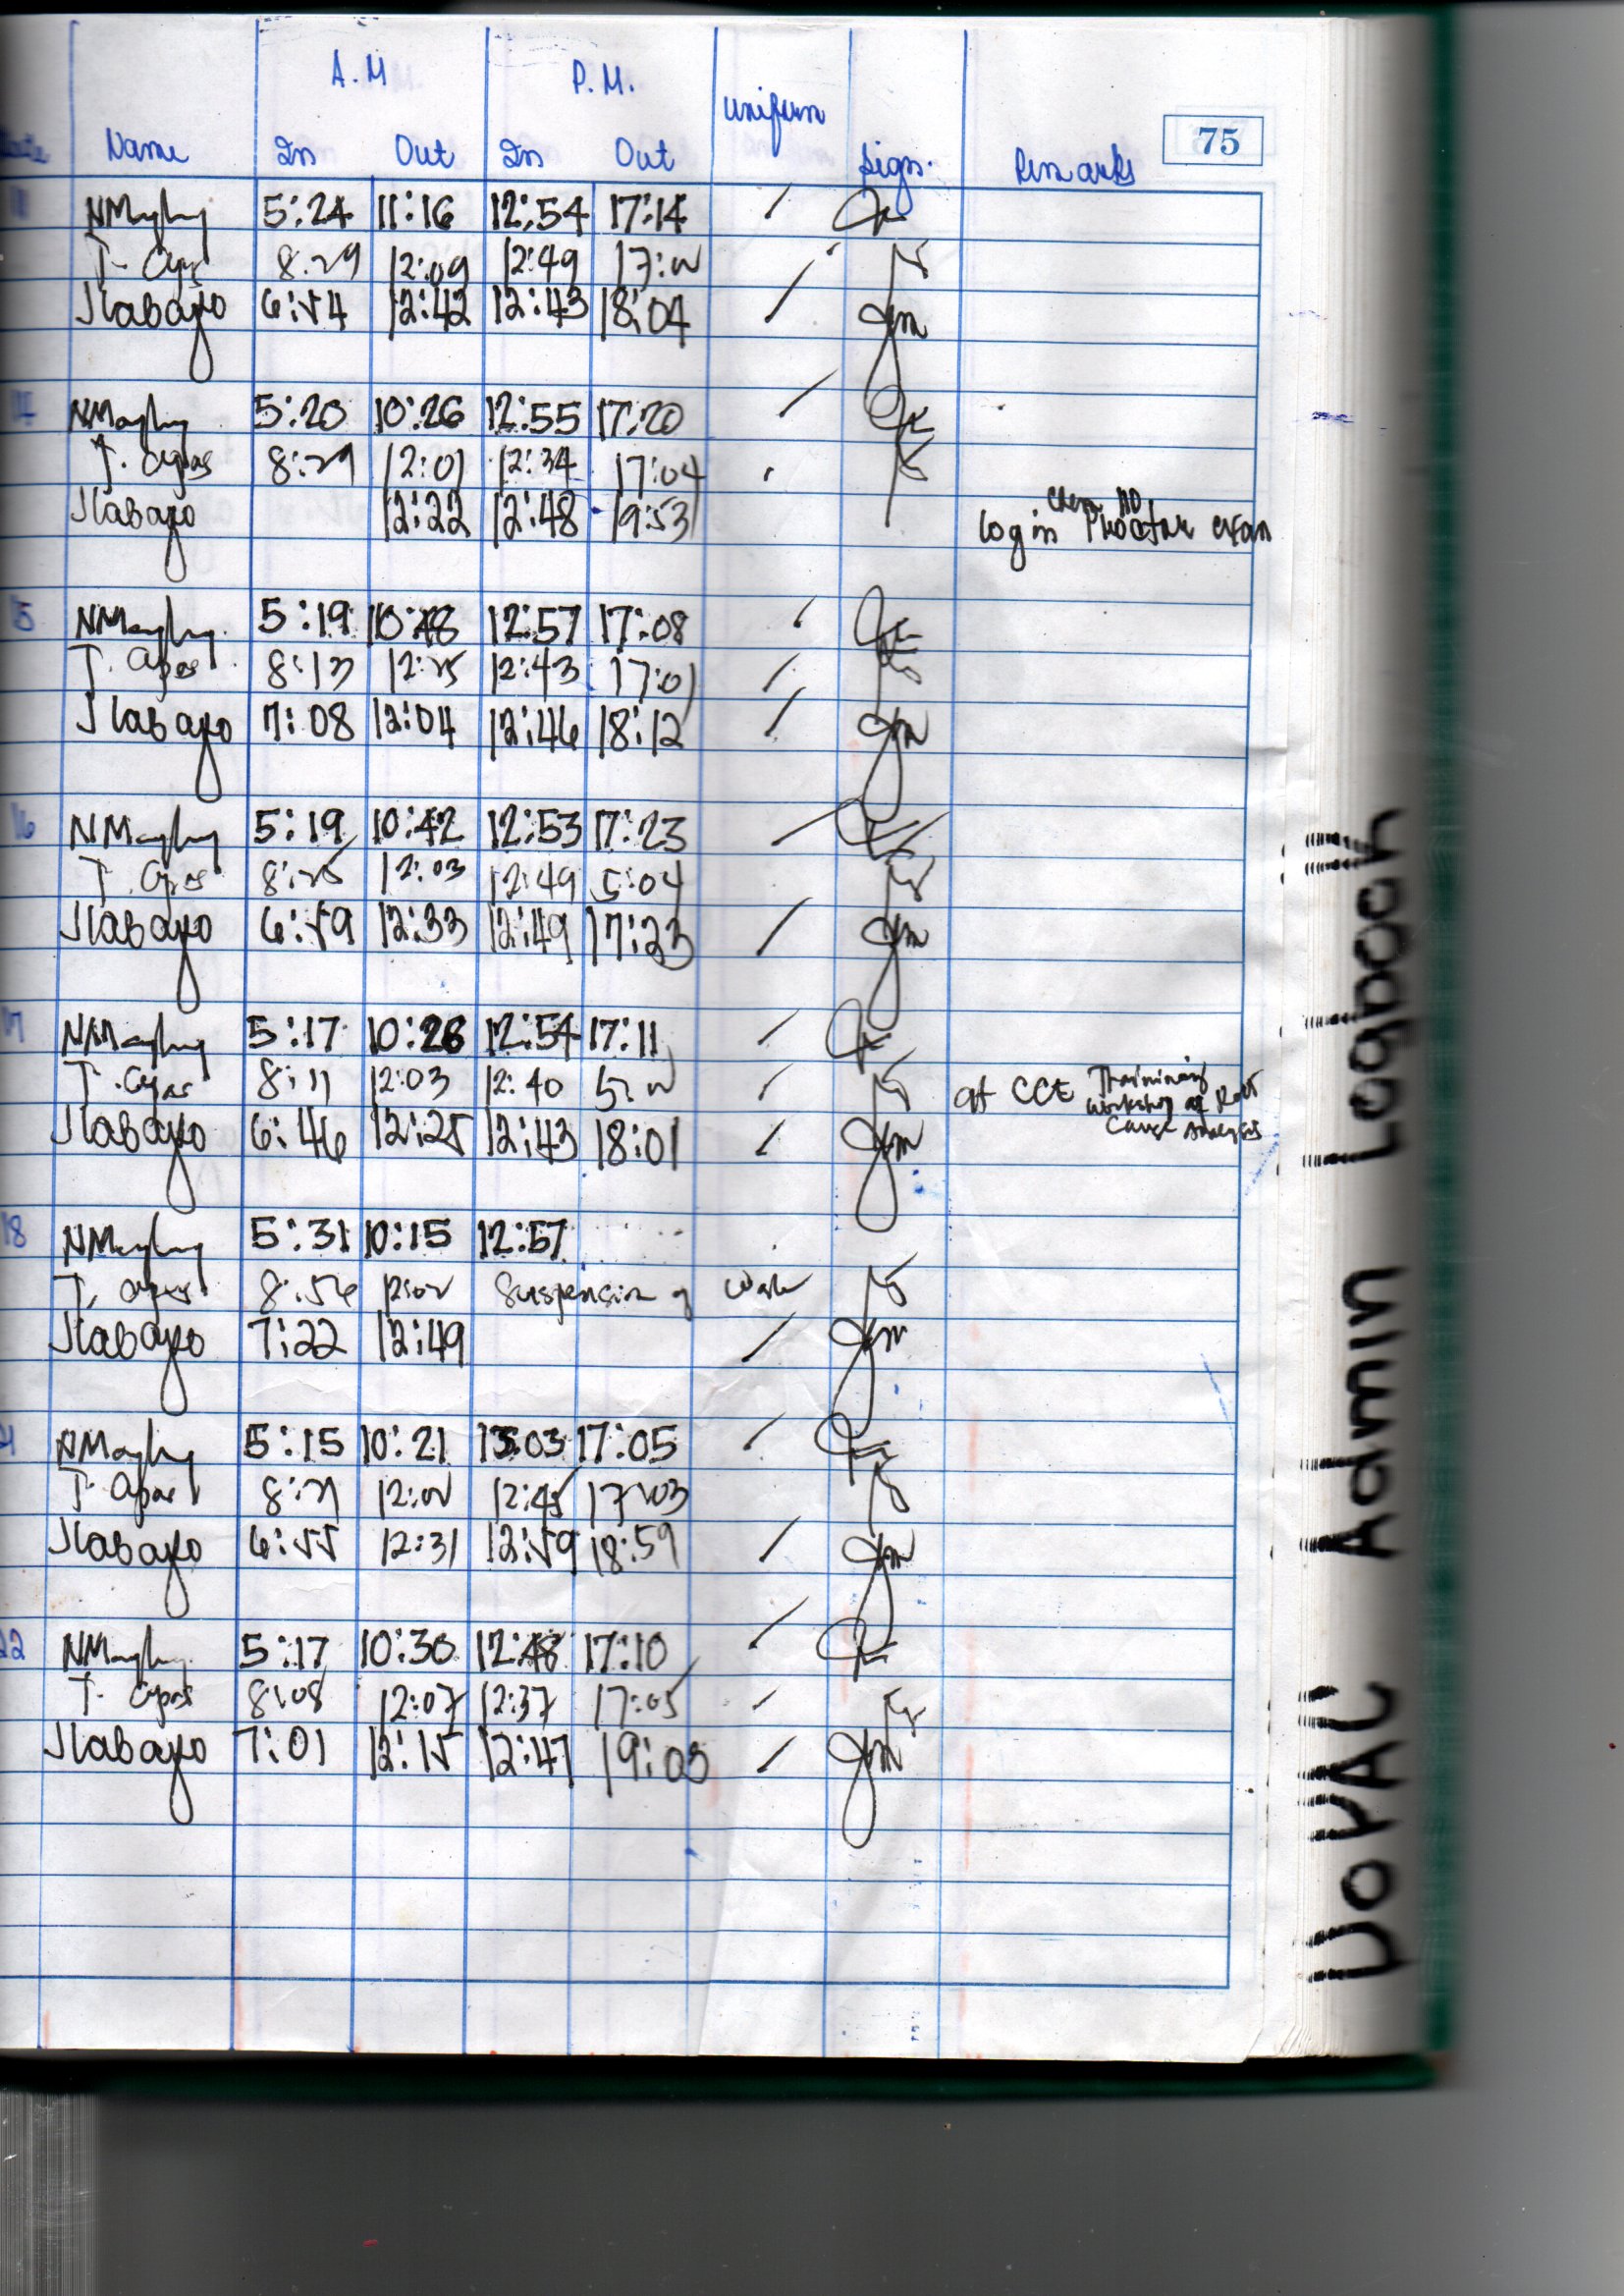 A.M P.M. Uniform
Name In Out In Out Sign. Remarks 75
11 5:24 11:16 12:54 17:14
T. 8:29 12:09 12:49
Jlabayo 6:54 12:42 12:43 18:04
5:20 10:26 12:55 17:20
T. 8:29 12:01 12:34 17:04
Jlabayo 12:22 12:48 19:53 log in
15 5:19 10:48 12:57 17:08
T. 12:43 17:01
Jlabayo 7:08 12:04 12:46 18:12
16 5:19 10:42 12:53 17:23
T. 8:25 12:03 12:49 5:04
Jlabayo 6:59 12:33 12:49 17:23
5:17 10:26 12:54 17:11
T. 8:11 12:03 12:40 at CCE Training
Workshop of Root
Cause Analysis
Jlabayo 6:46 12:25 12:43 18:01
18 5:31 10:15 12:57
T. 8:56 Suspension of Work
Jlabayo 7:22 12:49
5:15 10:21 13:03 17:05
T. 8:21 12:45 17:03
Jlabayo 6:55 12:31 12:59 18:59
22 5:17 10:30 12:48 17:10
T. 8:08 12:07 12:37 17:05
Jlabayo 7:01 12:15 12:47 19:03
DoPAC Admin Logbook